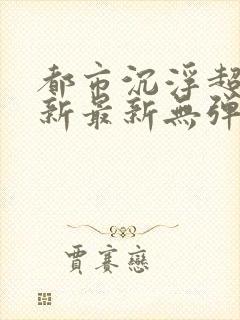 都市沉浮超
新最新無彈
賈賽戀